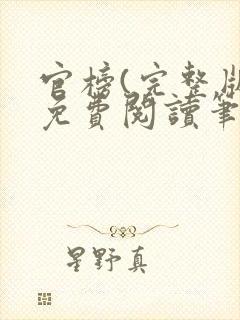 官榜(完整版
免費閱讀筆
星野真